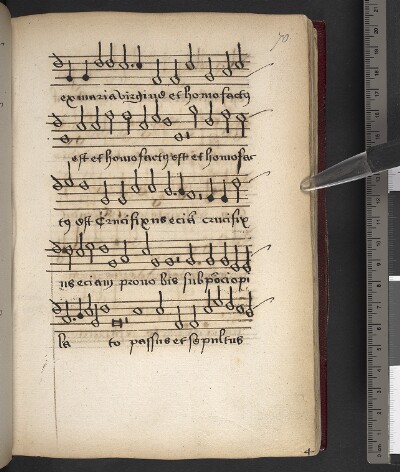 70
ex maria virgine et homo factus
est et homo factus est et homo fac
tus est Crucifixus eciam crucifix
us eciam pro no bis sub poncio pi
la to passus et sepultus